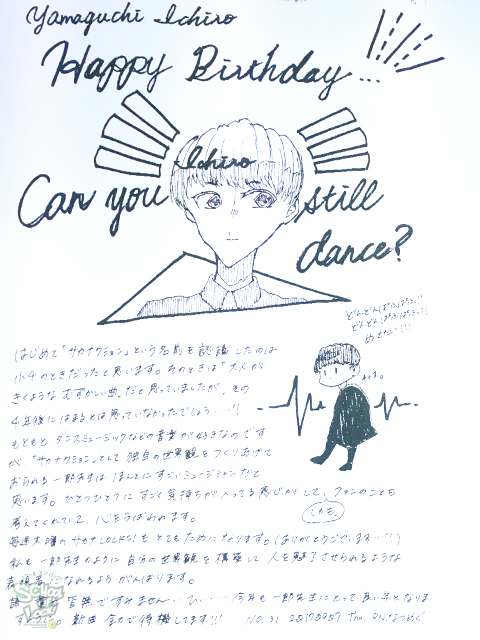 Yamaguchi Ichiro
Happy Birthday...
Ichiro
Can you still
dance?
どんどんぱふぱふぱふ!!
どんどんぱふぱふぱふ!!
めでたい!!!
はじめて「サカナクション」という名前を認識したのは
小4のときだったと思います。そのときは"大人が
きくようなむずかしい曲"だと思っていましたが、その
4年後にはまるとは思っていなかったでしょう……!!
もともとダンスミュージックなどの音楽が好きなのです
が"サカナクション"として独自の世界観をつくりあげて
おられる一郎先生はほんとにすごいミュージシャンだと
思います。ひとつひとつにすごく気持ちが入ってる感じがして、ファンのことも
考えてくれていて、心をうばわれます。
しかも、
毎週木曜のサカナLOCKS!もとてもためになります。(ありがとうございます…!!)
私も一郎先生のように自分の世界観を構築して人を魅了させられるような
表現者になれるようがんばります。
皆無ですみません……今年も一郎先生にとって良い年となりま
新曲全力で待機してます!!! NO.31 20170907 Thu. RN.なつめぐ
SCHOOL OF LOCK!